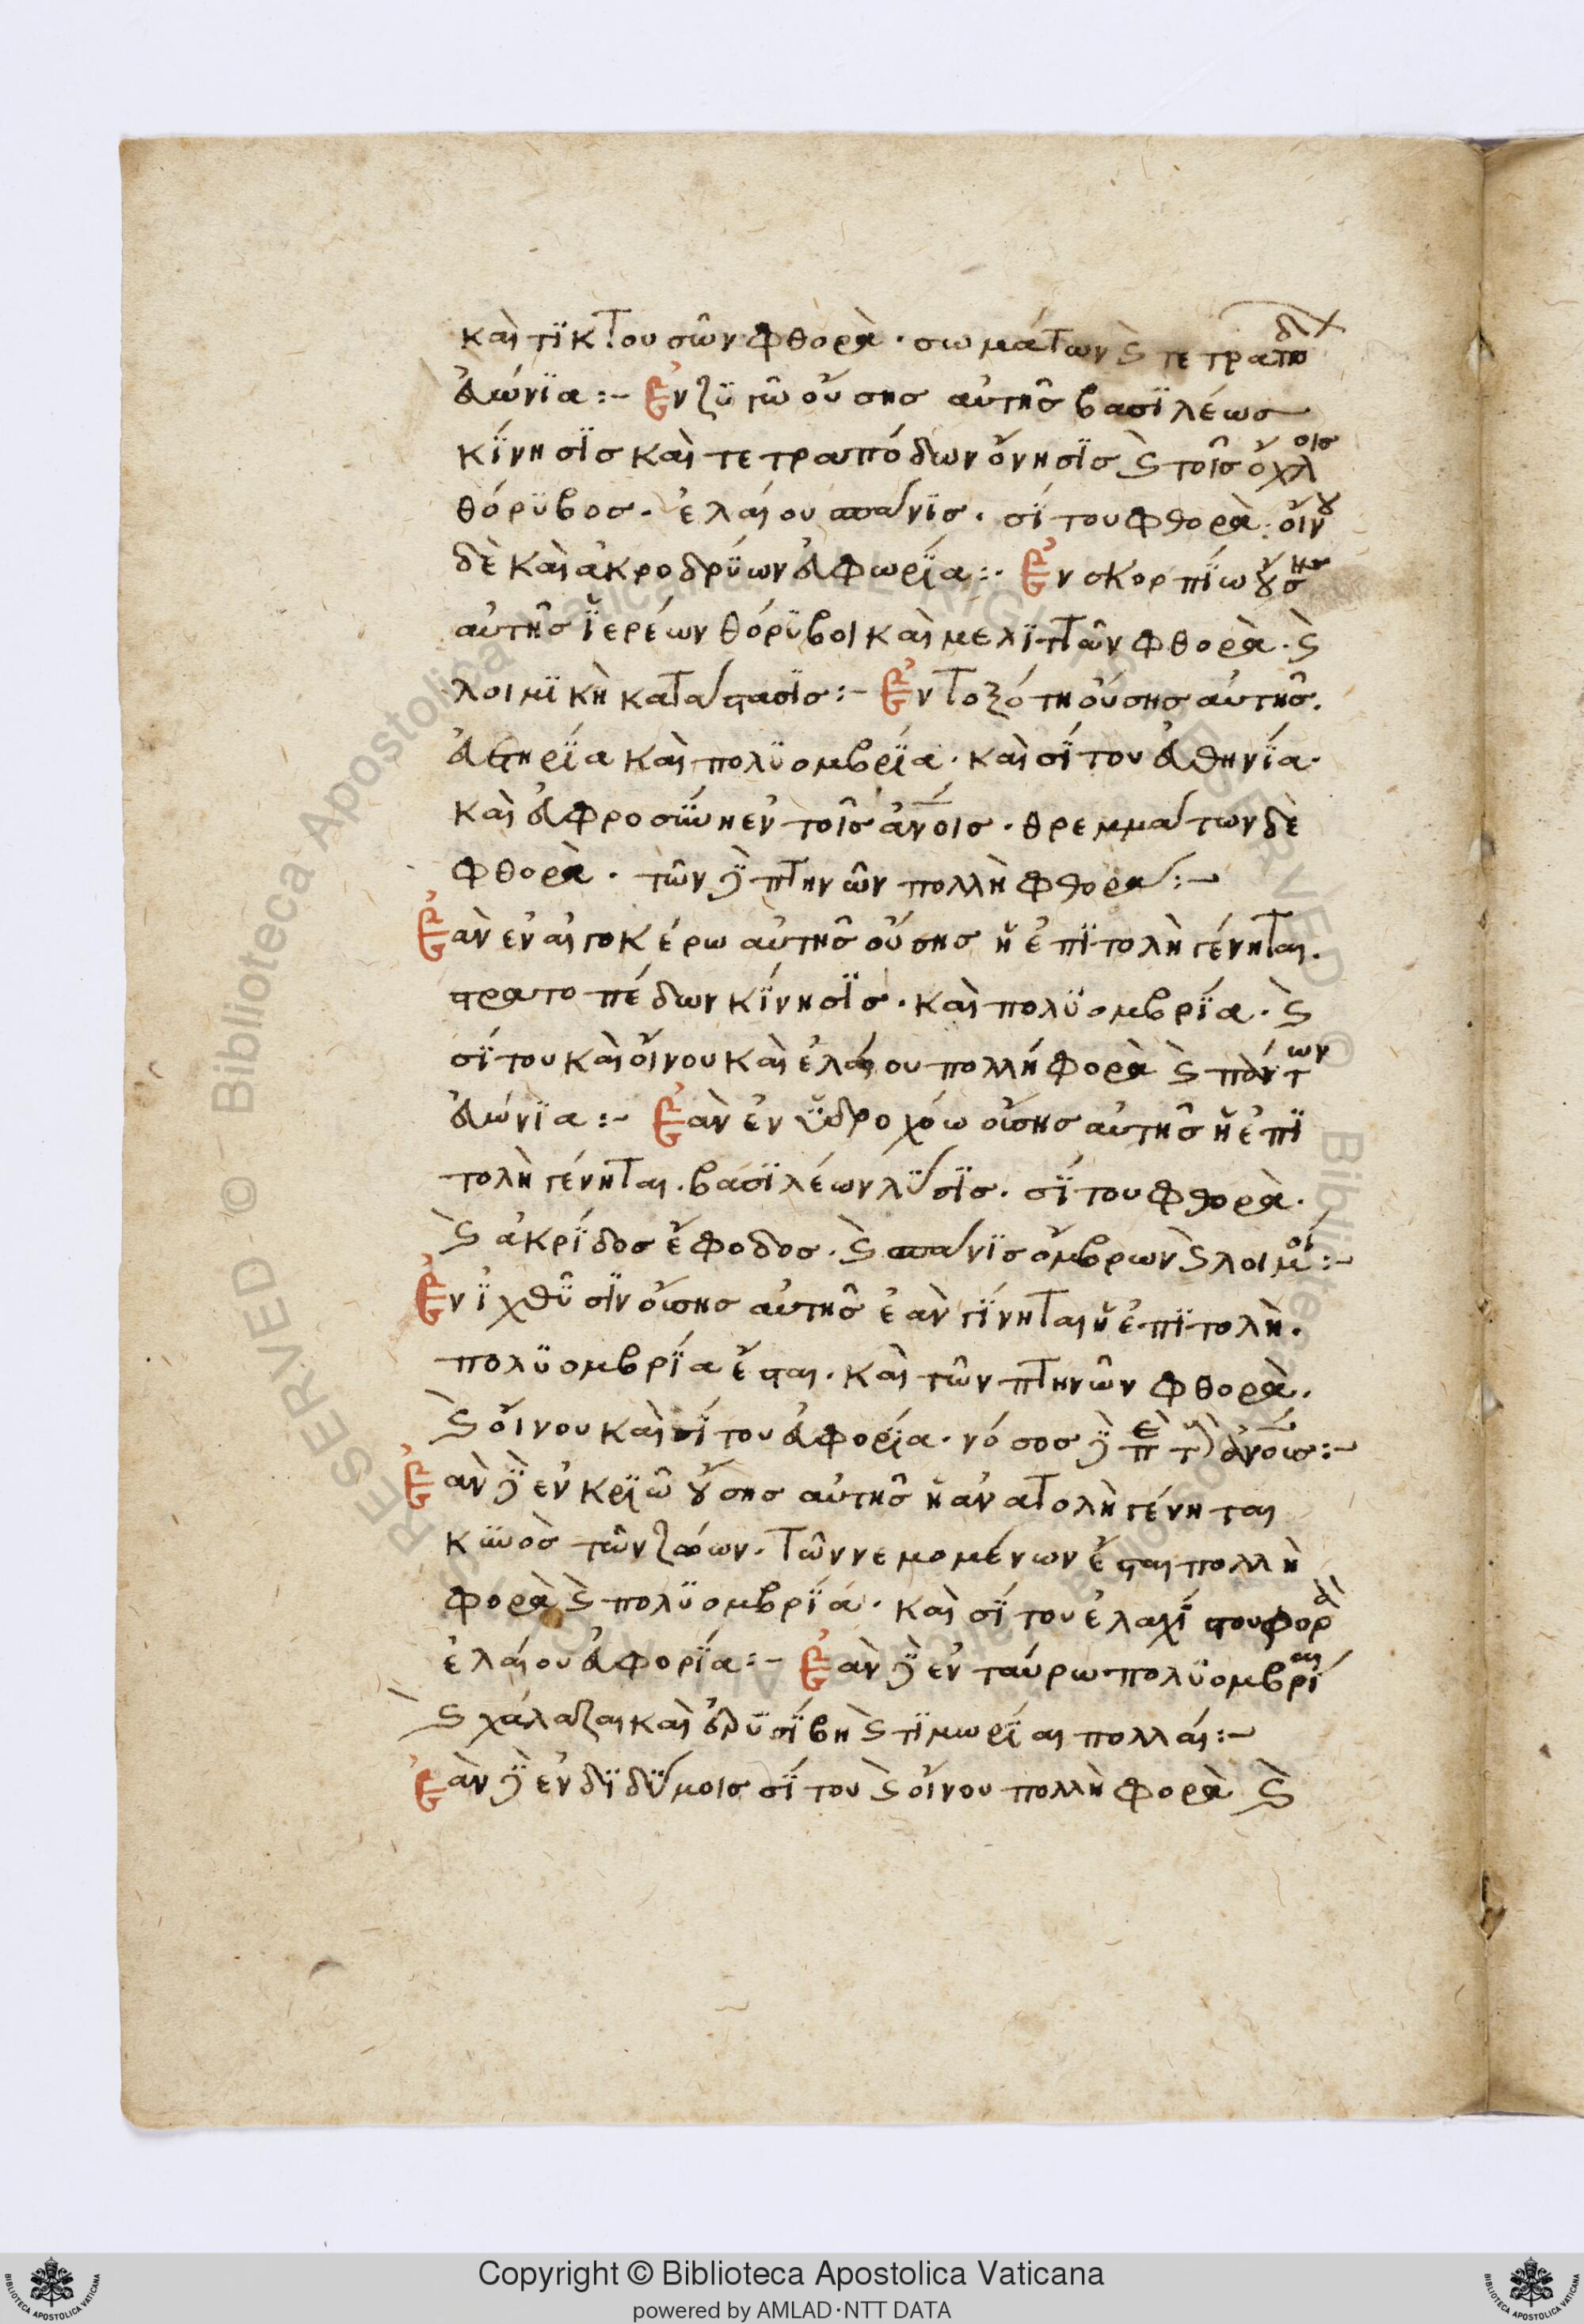 καὶ τϊκτουσῶν φθορὰ · σωμάτων ϛ τετραπόδ
ἀωνϊα :- Ἐν ζϋγῶ οὔσης αὐτῆς βασϊλέως
κΐνησϊς καὶ τετραπόδων ὄνησϊς ϛ τοῖς ὄχλοις
θόρϋβος · ἐλαίου σπάνϊς · σΐτου φθορὰ · οἴνου
δὲ καὶ ἀκροδρΰων ἀφωρΐα :· Ἐν σκορπΐω οὔσης
αὐτῆς ϊερέων θόρϋβοι καὶ μελϊττῶν φθορὰ · ϛ
λοιμϊκὴ κατάστασϊς :- Ἐν τοξότη οὔσης αὐτῆς.
ἀστηρΐα καὶ πολϋομβρΐα · καὶ σΐτου ἀθηνΐα ·
καὶ ἀφροσΰνη ἐν τοῖς ἀνοις · θρεμμάτων δὲ
φθορὰ · τῶν δὲ πτηνῶν πολλὴ φθορά :-
Ἐὰν ἐν αἰγοκέρω αὐτῆς οὔσης ἡ ἐπϊτολὴ γένηται.
στρατοπέδων κΐνησϊς · καὶ πολϋομβρΐα · ϛ
σΐτου καὶ οἴνου καὶ ἐλαίου πολλή φορὰ ϛ πάντων
ἀωνϊα :- Ἐὰν ἐν ὑδροχόω οὔσης αὐτῆς ἡ ἐπϊ
τολὴ γένηται · βασϊλέων λΰσϊς · σΐτου φθορὰ ·
ϛ ἀκρΐδος ἔφοδος · ϛ σπάνϊς ὄμβρων ϛ λοιμοί :-
Ἐν ϊχθϋσϊν οὔσης αὐτῆς ἐὰν γΐνηται ἡ ἐπϊτολὴ ·
πολϋομβρΐα ἔσται · καὶ τῶν πτηνῶν φθορὰ ·
ϛ οἴνου καὶ σΐτου ἀφορΐα · νόσος δὲ ἐπὶ τοὺς ἀνους :-
Ἐὰν δὲ ἐν κρϊῶ οὔσης αὐτῆς ἡ ἀνατολὴ γένηται
κϋνὸς τῶν ζώων · τῶν νεμομένων ἔσται πολλὴ
φορὰ ϛ πολϋομβρΐα · καὶ σΐτου ἐλαχΐστου φορὰ
ἐλαίου ἀφορΐα :- Ἐὰν δὲ ἐν ταύρω πολϋομβρΐαι
ϛ χάλαζαι καὶ ἐρϋσΐβη ϛ τϊμωρΐαι πολλαί :-
Ἐὰν δὲ ἐν δϊδΰμοις σΐτου ϛ οἴνου πολλὴ φορὰ ϛ
Copyright © Biblioteca Apostolica Vaticana
powered by AMLAD·NTT DATA